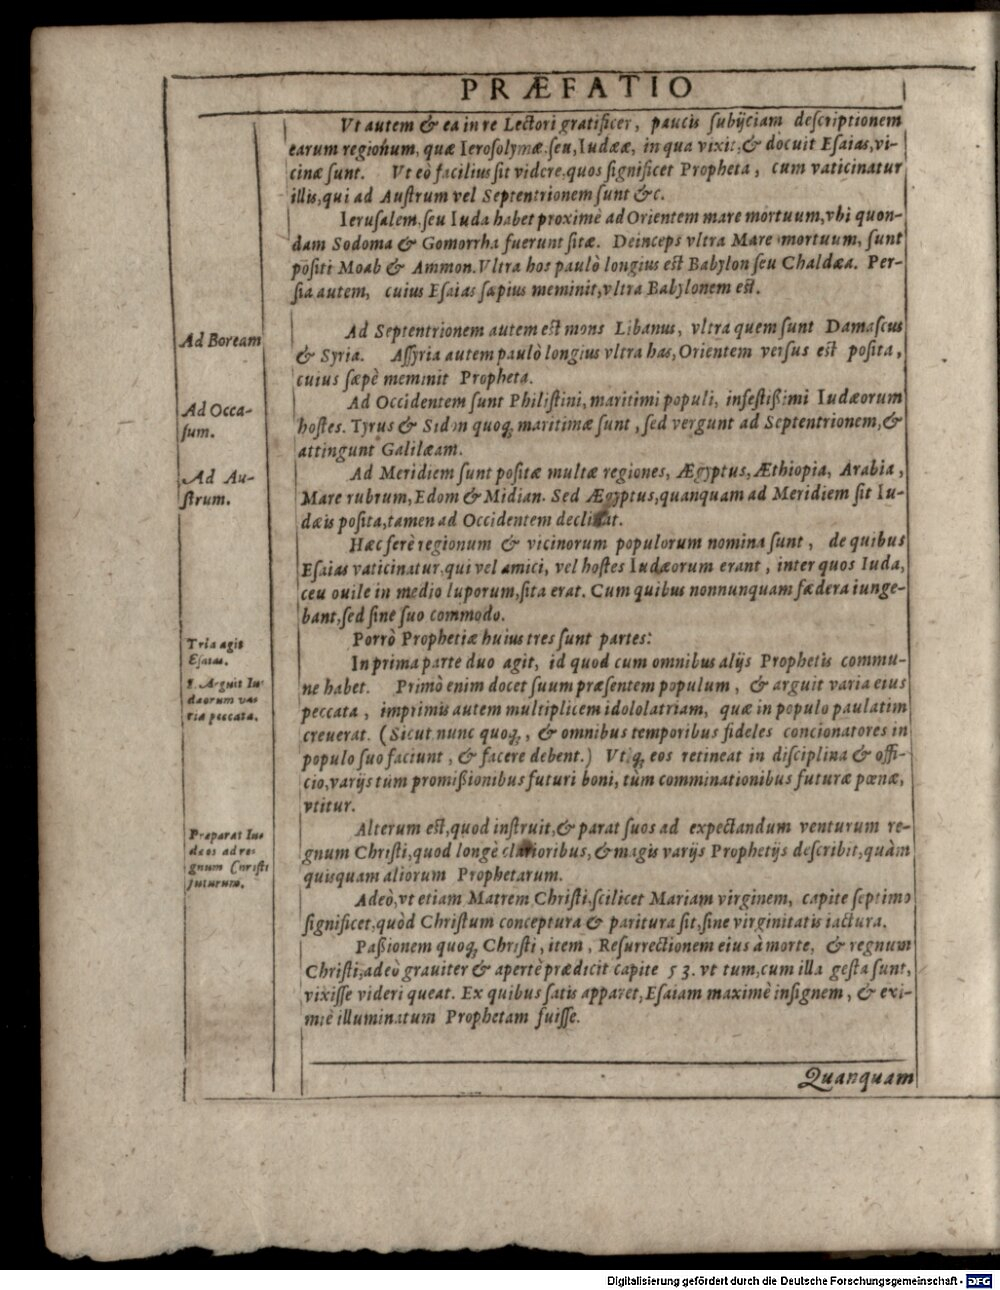 PRÆFATIO
Vt autem & ea in re Lectori gratificer, paucis ſubijciam deſcriptionem
earum regionum, quæ Ieroſolymæ, ſeu, Iudææ, in qua vixit, & docuit Eſaias, vi-
cinæ ſunt. Vt eò facilius ſit videre, quos ſignificet Propheta, cum vaticinatur
illis, qui ad Auſtrum vel Septentrionem ſunt &c.
Ieruſalem, ſeu Iuda habet proximè ad Orientem mare mortuum, vbi quon-
dam Sodoma & Gomorrha fuerunt ſitæ. Deinceps vltra Mare mortuum, ſunt
poſiti Moab & Ammon. Vltra hos paulò longius eſt Babylon ſeu Chaldæa. Per-
ſia autem, cuius Eſaias ſæpius meminit, vltra Babylonem eſt.
Ad Boream
Ad Septentrionem autem eſt mons Libanus, vltra quem ſunt Damaſcus
& Syria. Aſſyria autem paulò longius vltra has, Orientem verſus eſt poſita,
cuius ſæpè meminit Propheta.
Ad Occa-
ſum.
Ad Occidentem ſunt Philiſtini, maritimi populi, infeſtißimi Iudæorum
hoſtes. Tyrus & Sidon quoq; maritimæ ſunt, ſed vergunt ad Septentrionem, &
attingunt Galilæam.
Ad Au-
ſtrum.
Ad Meridiem ſunt poſitæ multæ regiones, Ægyptus, Æthiopia, Arabia,
Mare rubrum, Edom & Midian. Sed Ægyptus, quanquam ad Meridiem ſit Iu-
dæis poſita, tamen ad Occidentem declinat.
Hæc ferè regionum & vicinorum populorum nomina ſunt, de quibus
Eſaias vaticinatur, qui vel amici, vel hoſtes Iudæorum erant, inter quos Iuda,
ceu ouile in medio luporum, ſita erat. Cum quibus nonnunquam fædera iunge-
bant, ſed ſine ſuo commodo.
Tria agit
Eſaias.
Porrò Prophetiæ huius tres ſunt partes:
In prima parte duo agit, id quod cum omnibus alijs Prophetis commu-
1. Arguit Iu-
dæorum va-
ria peccata.
ne habet. Primò enim docet ſuum præſentem populum, & arguit varia eius
peccata, imprimis autem multiplicem idololatriam, quæ in populo paulatim
creuerat. (Sicut nunc quoq;, & omnibus temporibus fideles concionatores in
populo ſuo faciunt, & facere debent.) Vtq; eos retineat in diſciplina & offi-
cio, varijs tùm promißionibus futuri boni, tùm comminationibus futuræ pœnæ,
vtitur.
Præparat Iu-
dæos ad re-
gnum Chriſti
futurum.
Alterum eſt, quod inſtruit, & parat ſuos ad expectandum venturum re-
gnum Chriſti, quod longè clarioribus, & magis varijs Prophetijs deſcribit, quàm
quisquam aliorum Prophetarum.
Adeò, vt etiam Matrem Chriſti, ſcilicet Mariam virginem, capite ſeptimo
ſignificet, quòd Chriſtum conceptura & paritura ſit, ſine virginitatis iactura.
Paßionem quoq; Chriſti, item, Reſurrectionem eius à morte, & regnum
Chriſti, adeò grauiter & apertè prædicit capite 53. vt tum, cum illa geſta ſunt,
vixiſſe videri queat. Ex quibus ſatis apparet, Eſaiam maximè inſignem, & exi-
miè illuminatum Prophetam fuiſſe.
Quanquam
Digitalisierung gefördert durch die Deutsche Forschungsgemeinschaft - DFG